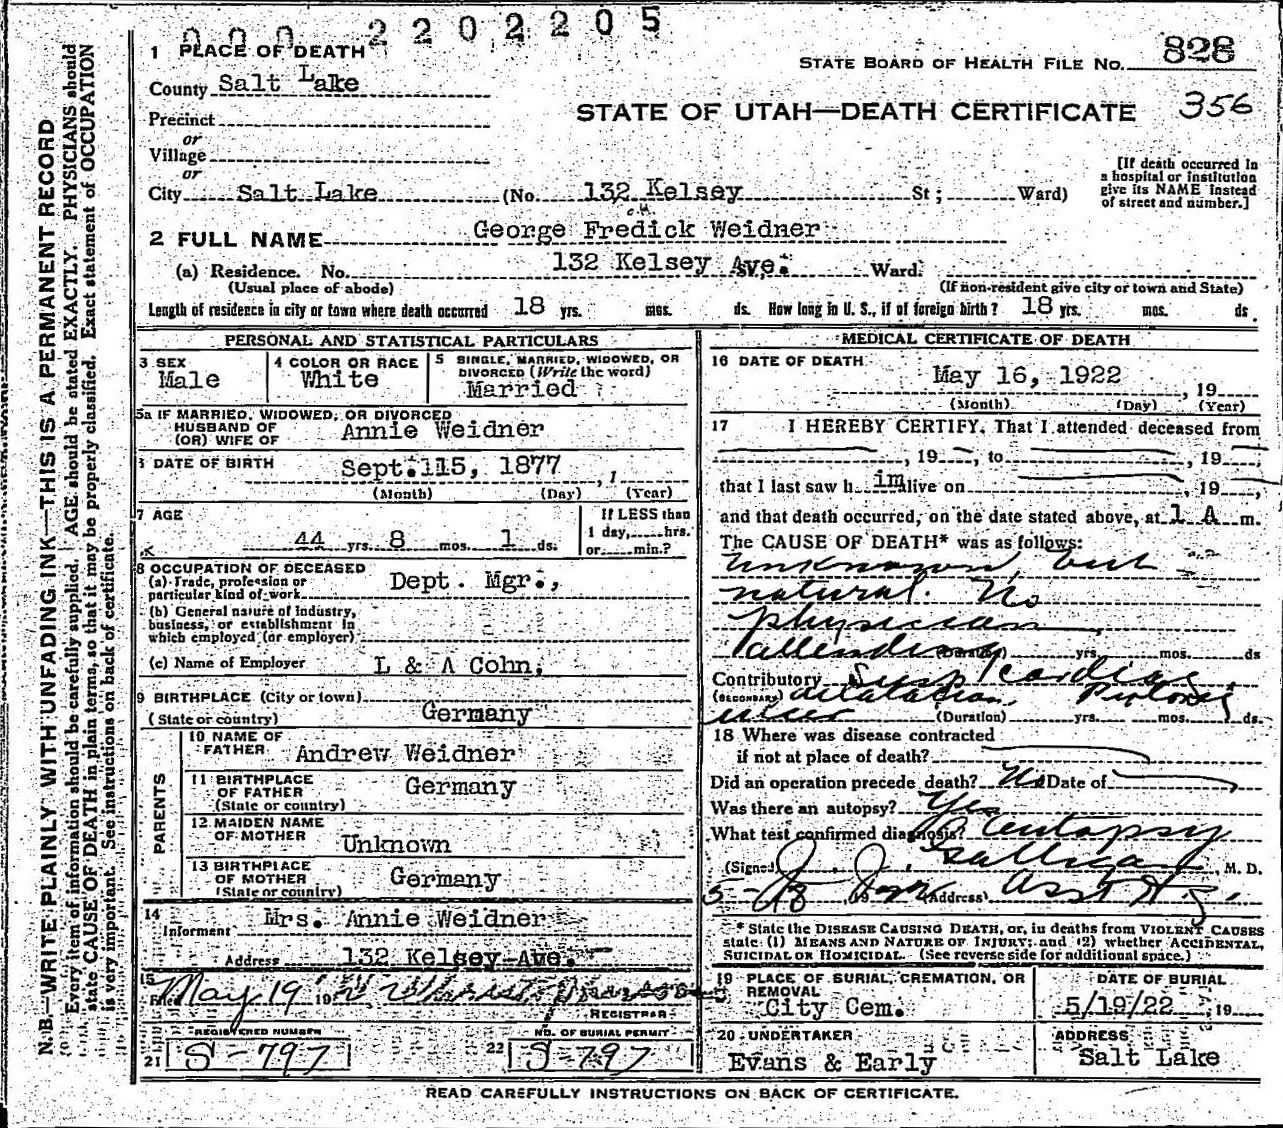 000 2202205
1 PLACE OF DEATH
STATE BOARD OF HEALTH FILE NO. 828
County Salt Lake
STATE OF UTAH—DEATH CERTIFICATE 356
Precinct
or
Village
or
City Salt Lake (No. 132 Kelsey St; Ward)
[If death occurred in
a hospital or institution
give its NAME instead
of street and number.]
2 FULL NAME George Fredick Weidner
(a) Residence. No. 132 Kelsey Ave. Ward.
(Usual place of abode) (If non-resident give city or town and State)
Length of residence in city or town where death occurred 18 yrs. mos. ds. How long in U. S., if of foreign birth? 18 yrs. mos. ds.
PERSONAL AND STATISTICAL PARTICULARS
3 SEX Male
4 COLOR OR RACE White
5 SINGLE, MARRIED, WIDOWED, OR
DIVORCED (Write the word)
Married
5a IF MARRIED, WIDOWED, OR DIVORCED
HUSBAND OF
(OR) WIFE OF Annie Weidner
DATE OF BIRTH Sept. 15, 1877 , 1
(Month) (Day) (Year)
7 AGE
44 yrs. 8 mos. 1 ds.
If LESS than
1 day, hrs.
or min.?
8 OCCUPATION OF DECEASED
(a) Trade, profession or
particular kind of work Dept. Mgr.,
(b) General nature of industry,
business, or establishment in
which employed (or employer)
(c) Name of Employer L & A Cohn,
9 BIRTHPLACE (City or town)
(State or country) Germany
PARENTS
10 NAME OF
FATHER Andrew Weidner
11 BIRTHPLACE
OF FATHER
(State or country) Germany
12 MAIDEN NAME
OF MOTHER Unknown
13 BIRTHPLACE
OF MOTHER
(State or country) Germany
14
Informant Mrs. Annie Weidner
Address 132 Kelsey Ave.
15
Filed May 19 19
REGISTRAR
REGISTERED NUMBER
21 S-797
NO. OF BURIAL PERMIT
22 S-797
MEDICAL CERTIFICATE OF DEATH
16 DATE OF DEATH
May 16, 1922 , 19
(Month) (Day) (Year)
17 I HEREBY CERTIFY, That I attended deceased from
, 19 , to , 19 ,
that I last saw h im alive on , 19 ,
and that death occurred, on the date stated above, at 1 A m.
The CAUSE OF DEATH* was as follows:
Unknown, but
natural. No
physician
attending
(Duration) yrs. mos. ds
Contributory Cardiac
(SECONDARY) dilatation. Pyloric
ulcer (Duration) yrs. mos. ds.
18 Where was disease contracted
if not at place of death?
Did an operation precede death? No Date of
Was there an autopsy? Yes
What test confirmed diagnosis? Autopsy
(Signed) , M. D.
5- 19 (Address) Asst
* State the DISEASE CAUSING DEATH, or, in deaths from VIOLENT CAUSES
state (1) MEANS AND NATURE OF INJURY; and (2) whether ACCIDENTAL,
SUICIDAL OR HOMICIDAL. (See reverse side for additional space.)
19 PLACE OF BURIAL, CREMATION, OR
REMOVAL
City Cem.
DATE OF BURIAL
5/19/22 , 19
20 UNDERTAKER
Evans & Early
ADDRESS
Salt Lake
READ CAREFULLY INSTRUCTIONS ON BACK OF CERTIFICATE.
N.B.—WRITE PLAINLY WITH UNFADING INK—THIS IS A PERMANENT RECORD
Every item of information should be carefully supplied. AGE should be stated EXACTLY. PHYSICIANS should
state CAUSE OF DEATH in plain terms, so that it may be properly classified. Exact statement of OCCUPATION
is very important. See instructions on back of certificate.